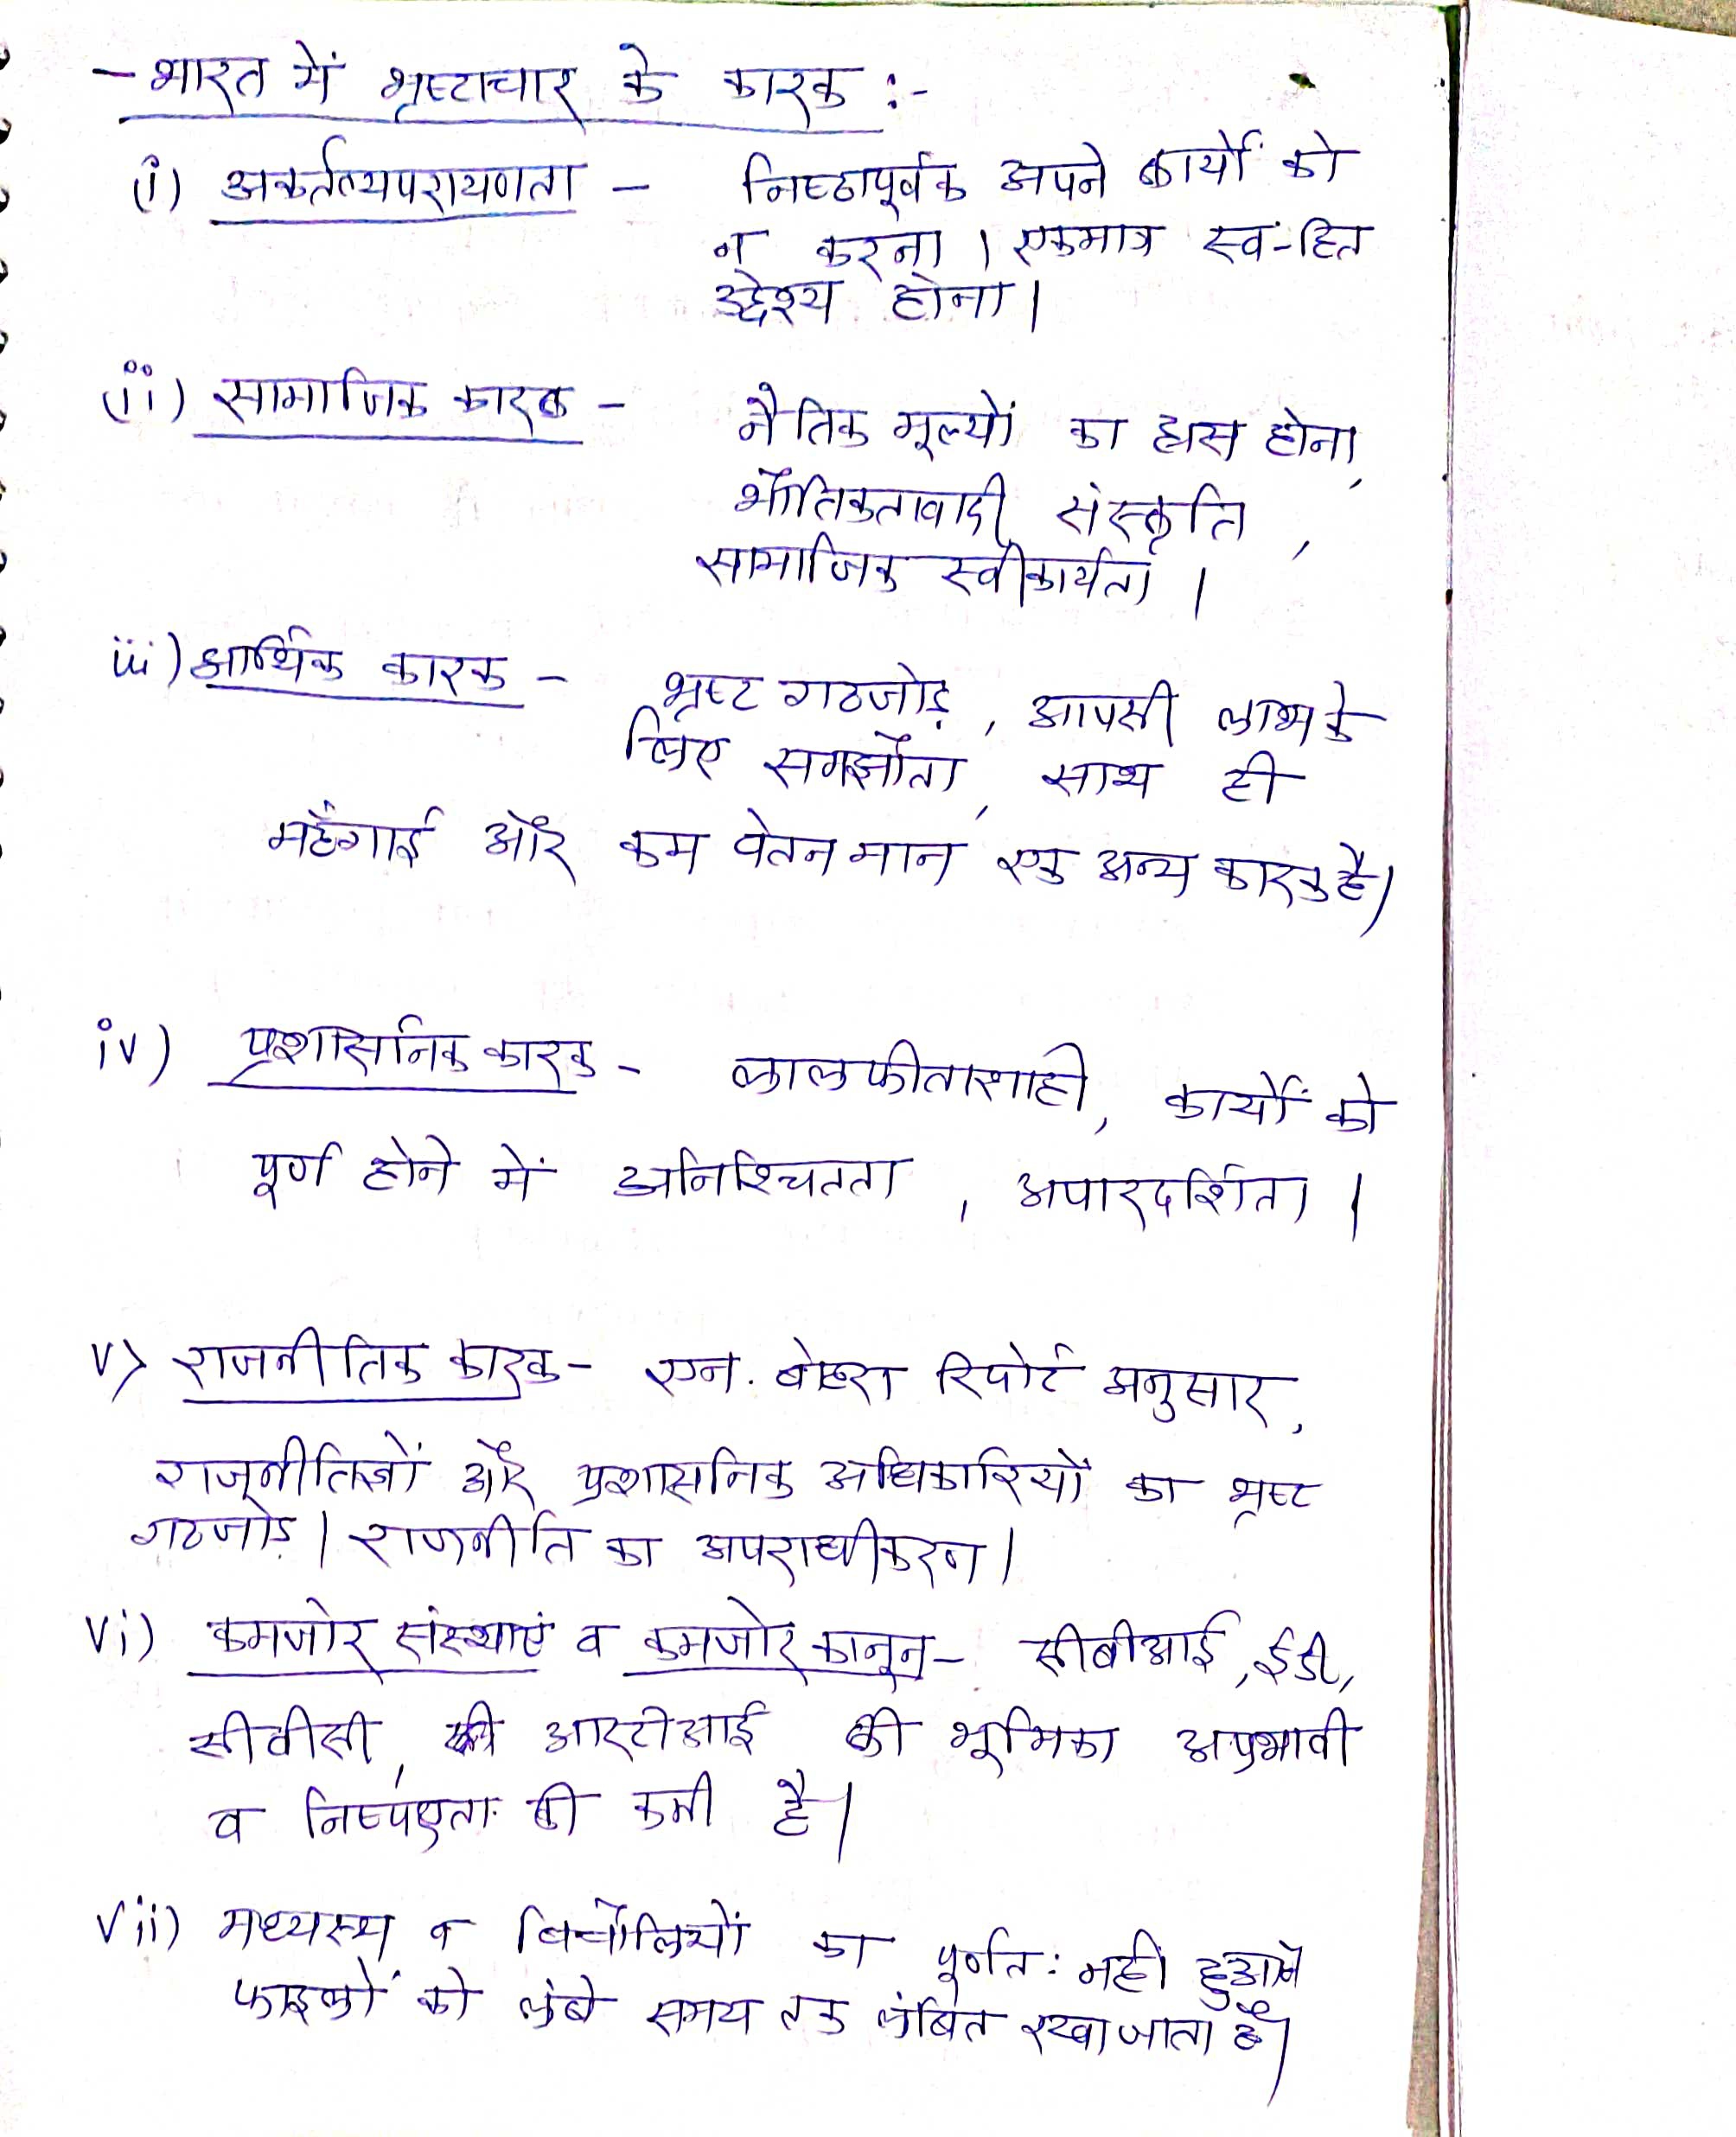 - भारत में भ्रष्टाचार के कारक :-
(i) अकर्तव्यपरायणता - निष्ठापूर्वक अपने कार्यों को
न करना। एकमात्र स्व-हित
उद्देश्य होना।
(ii) सामाजिक कारक - नैतिक मूल्यों का ह्रास होना,
भौतिकतावादी संस्कृति,
सामाजिक स्वीकार्यता।
iii) आर्थिक कारक - भ्रष्ट गठजोड़, आपसी लाभ के
लिए समझौता, साथ ही
महँगाई और कम वेतनमान एक अन्य कारक है।
iv) प्रशासनिक कारक - लालफीताशाही, कार्यों को
पूर्ण होने में अनिश्चितता, अपारदर्शिता।
v) राजनीतिक कारक - एन. बोहरा रिपोर्ट अनुसार,
राजनीतिज्ञों और प्रशासनिक अधिकारियों का भ्रष्ट
गठजोड़। राजनीति का अपराधीकरण।
vi) कमजोर संस्थाएं व कमजोर कानून - सीबीआई, ईडी,
सीवीसी, आरटीआई की भूमिका अप्रभावी
व निष्पक्षता की कमी है।
vii) मध्यस्थ व बिचौलियों का पूर्णतः नही
फाइलों को लंबे समय तक लंबित रखा जाता है।